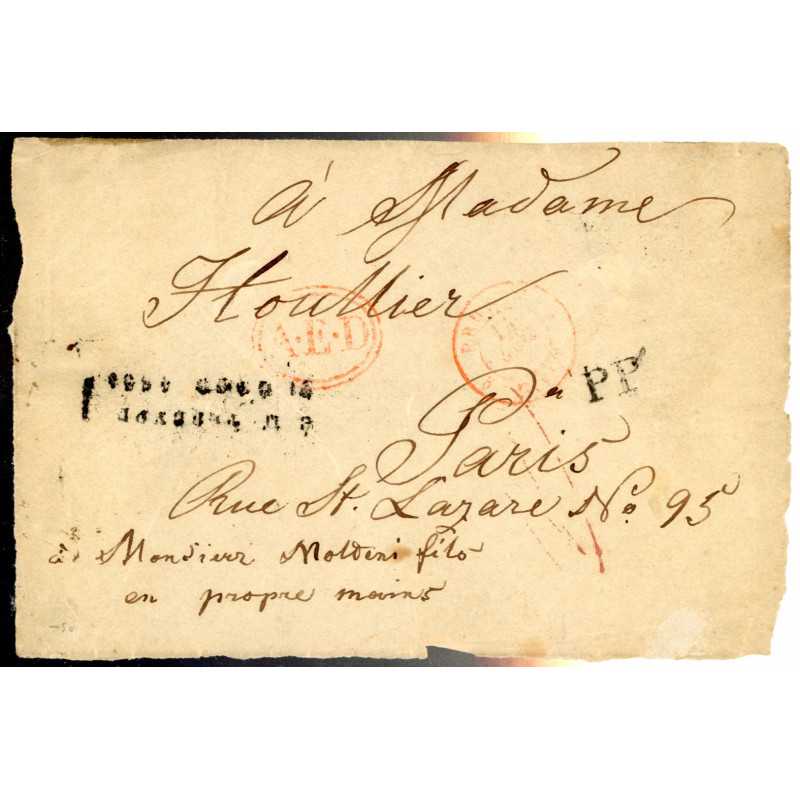 à Madame
Houllier
A·E·D
PP
à
Paris
Rue St. Lazare No. 95
à Monsieur Moldini fils
en propre mains